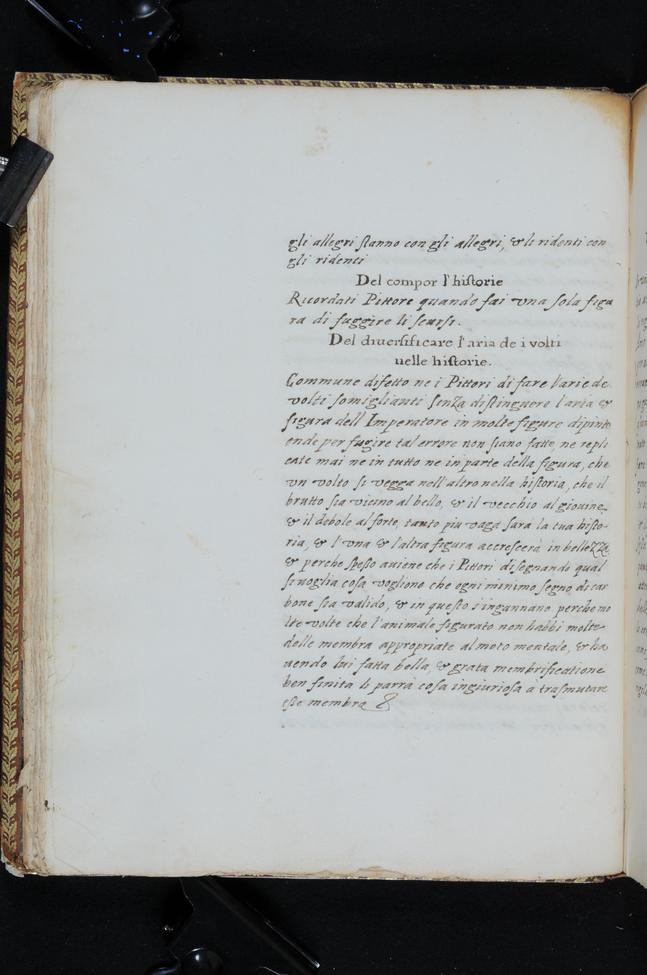 gli allegri stanno con gli allegri, & li ridenti con
gli ridenti
Del compor l'historie
Ricordati Pittore quando fai vna sola figu
ra di fuggire li scursi.
Del diuersificare l'aria de i volti
nelle historie.
Commune difetto ne i Pittori di fare l'arie de
volti somiglianti senza distinguere l'aria &
figura dell Imperatore in molte figure dipinte
onde per fugire tal errore non siano fatte, ne repli
cate mai ne in tutto ne in parte della figura, che
vn volto si vegga nell altro nella historia, che il
brutto sia vicino al bello, & il vecchio al giouine
& il debole al forte, tanto piu vaga sarà la tua histo
ria, & l'vna & l'altra figura accrescerà in bellezza
& perche spesso auiene che i Pittori disegnando qual
si voglia cosa vogliono che ogni minimo segno di car
bone sia valido, & in questo s'ingannano, perche mo
lte volte che l'animale figurato non habbi molte
delle membra appropriate al moto mentale, & ha
uendo lui fatta bella, & grata membrificatione
ben finita li parrà cosa ingiuriosa a trasmutare
esse membra